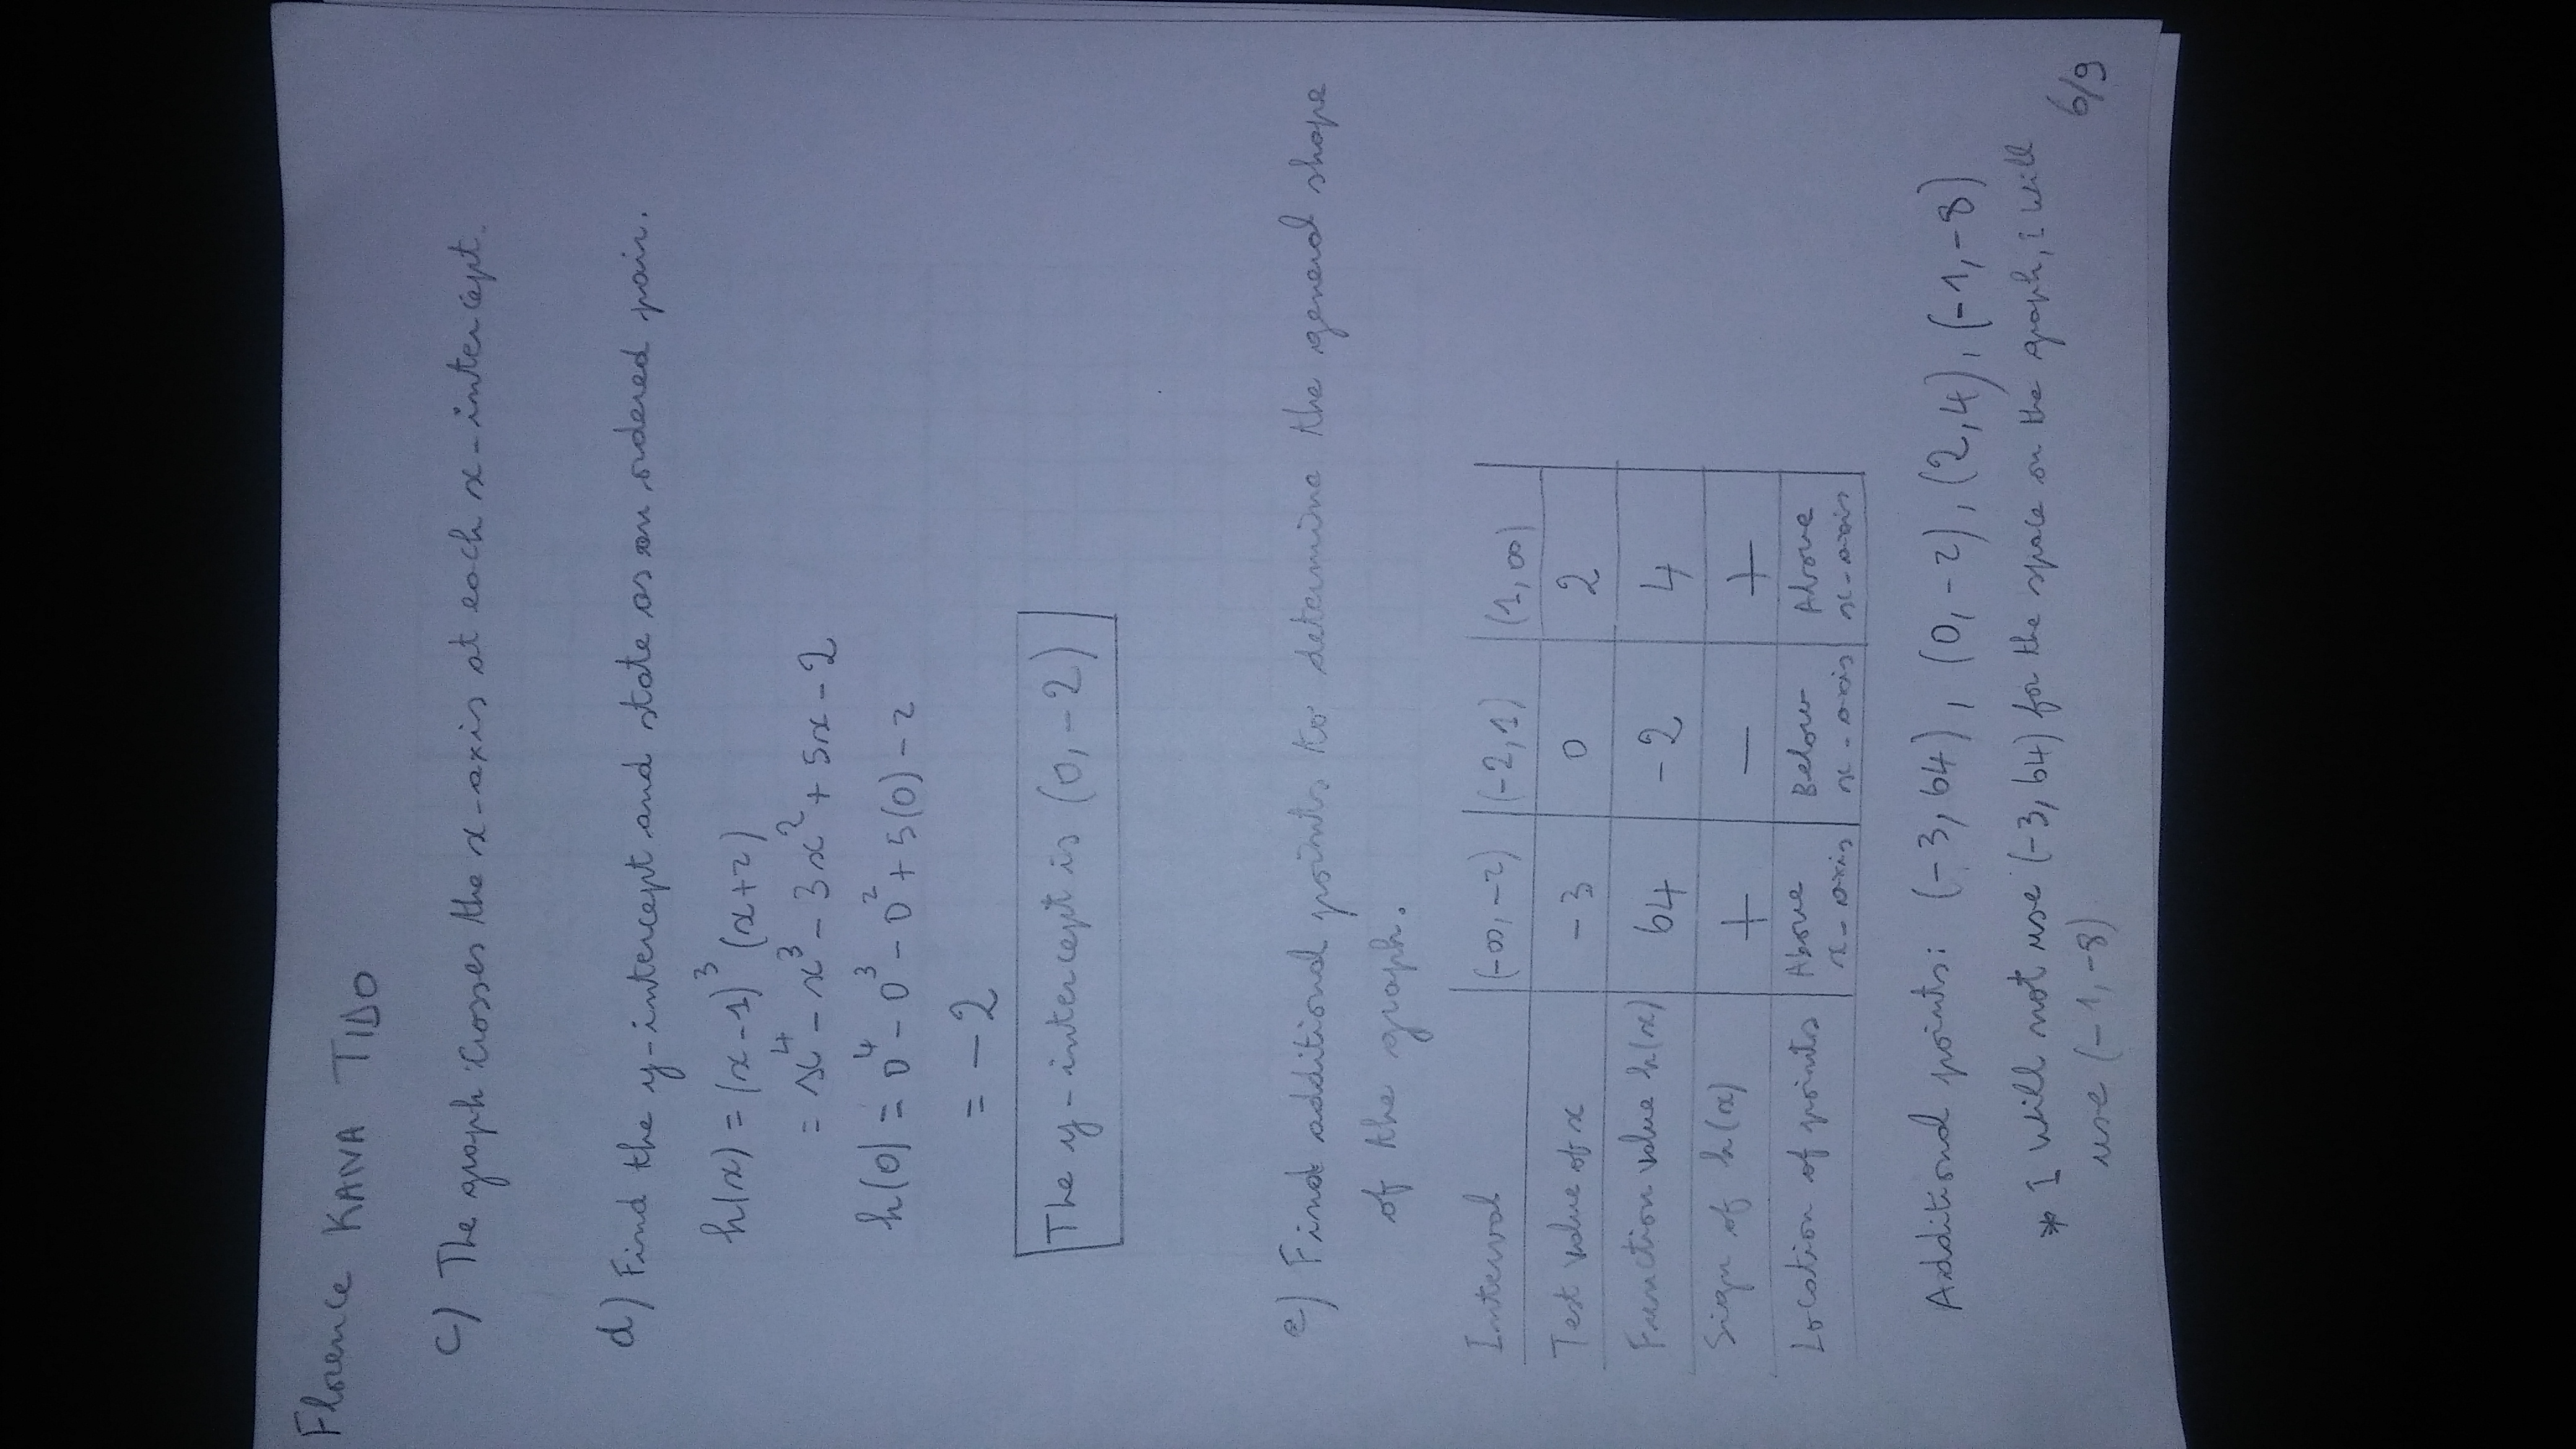 Florence KANA TIDO
c) The graph crosses the x-axis at each x-intercept.
d) Find the y-intercept and state as an ordered pair.
h(x) = (x-1)³ (x+2)
= x⁴ - x³ - 3x² + 5x - 2
h(0) = 0⁴ - 0³ - 0² + 5(0) - 2
= -2
The y-intercept is (0, -2)
e) Find additional points to determine the general shape
of the graph.
Interval | (-∞, -2) | (-2, 1) | (1, ∞)
Test value of x | -3 | 0 | 2
Function value h(x) | 64 | -2 | 4
Sign of h(x) | + | - | +
Location of points | Above x-axis | Below x-axis | Above x-axis
Additional points: (-3, 64), (0, -2), (2, 4), (-1, -8)
* I will not use (-3, 64) for the space on the graph, i will
use (-1, -8)
6/9